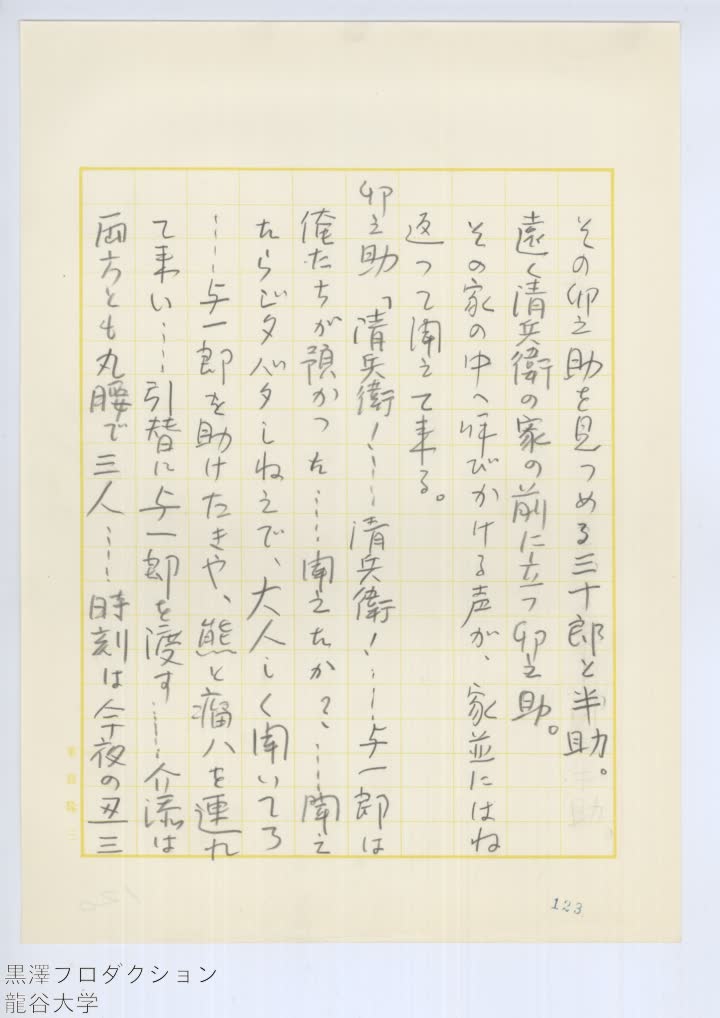 その卯之助を見つめる三十郎と半助。
遠く清兵衛の家の前に立つ卯之助。
その家の中へ呼びかける声が、家並にはね
返つて聞えて来る。
卯之助「清兵衛！……清兵衛！……与一郎は
俺たちが預かつた……聞えたか？……聞え
たらジタバタしねえで、大人しく聞いてろ
……与一郎を助けたきや、熊と瘤八を連れ
て来い……引替に与一郎を渡す……介添は
両方とも丸腰で三人……時刻は今夜の丑三
123
黒澤プロダクション
龍谷大学